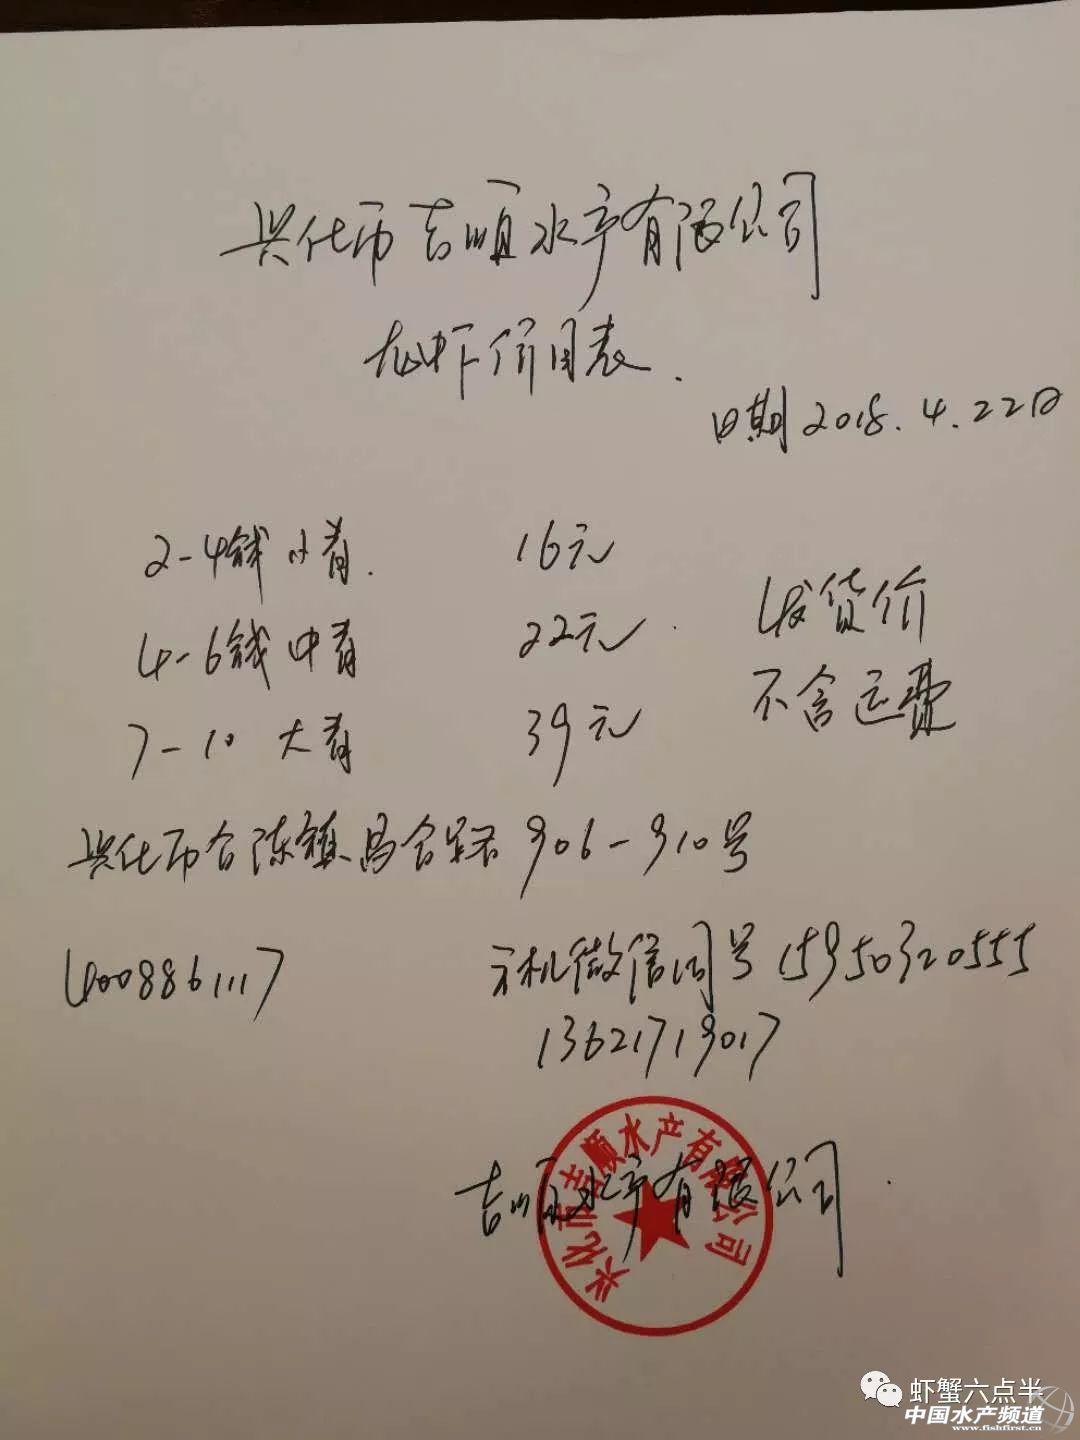 兴化市吉顺水产有限公司
龙虾价目表.
日期2018.4.22日
2-4钱小青. 16元
4-6钱中青 22元.
7-10 大青 39元
发货价
不含运费
兴化市合陈镇昌合路906-910号
4008861117
手机微信同号15950320555
13621719017
吉顺水产有限公司.
兴化市吉顺水产有限公司
虾蟹六点半
中国水产频道
www.fishfirst.cn